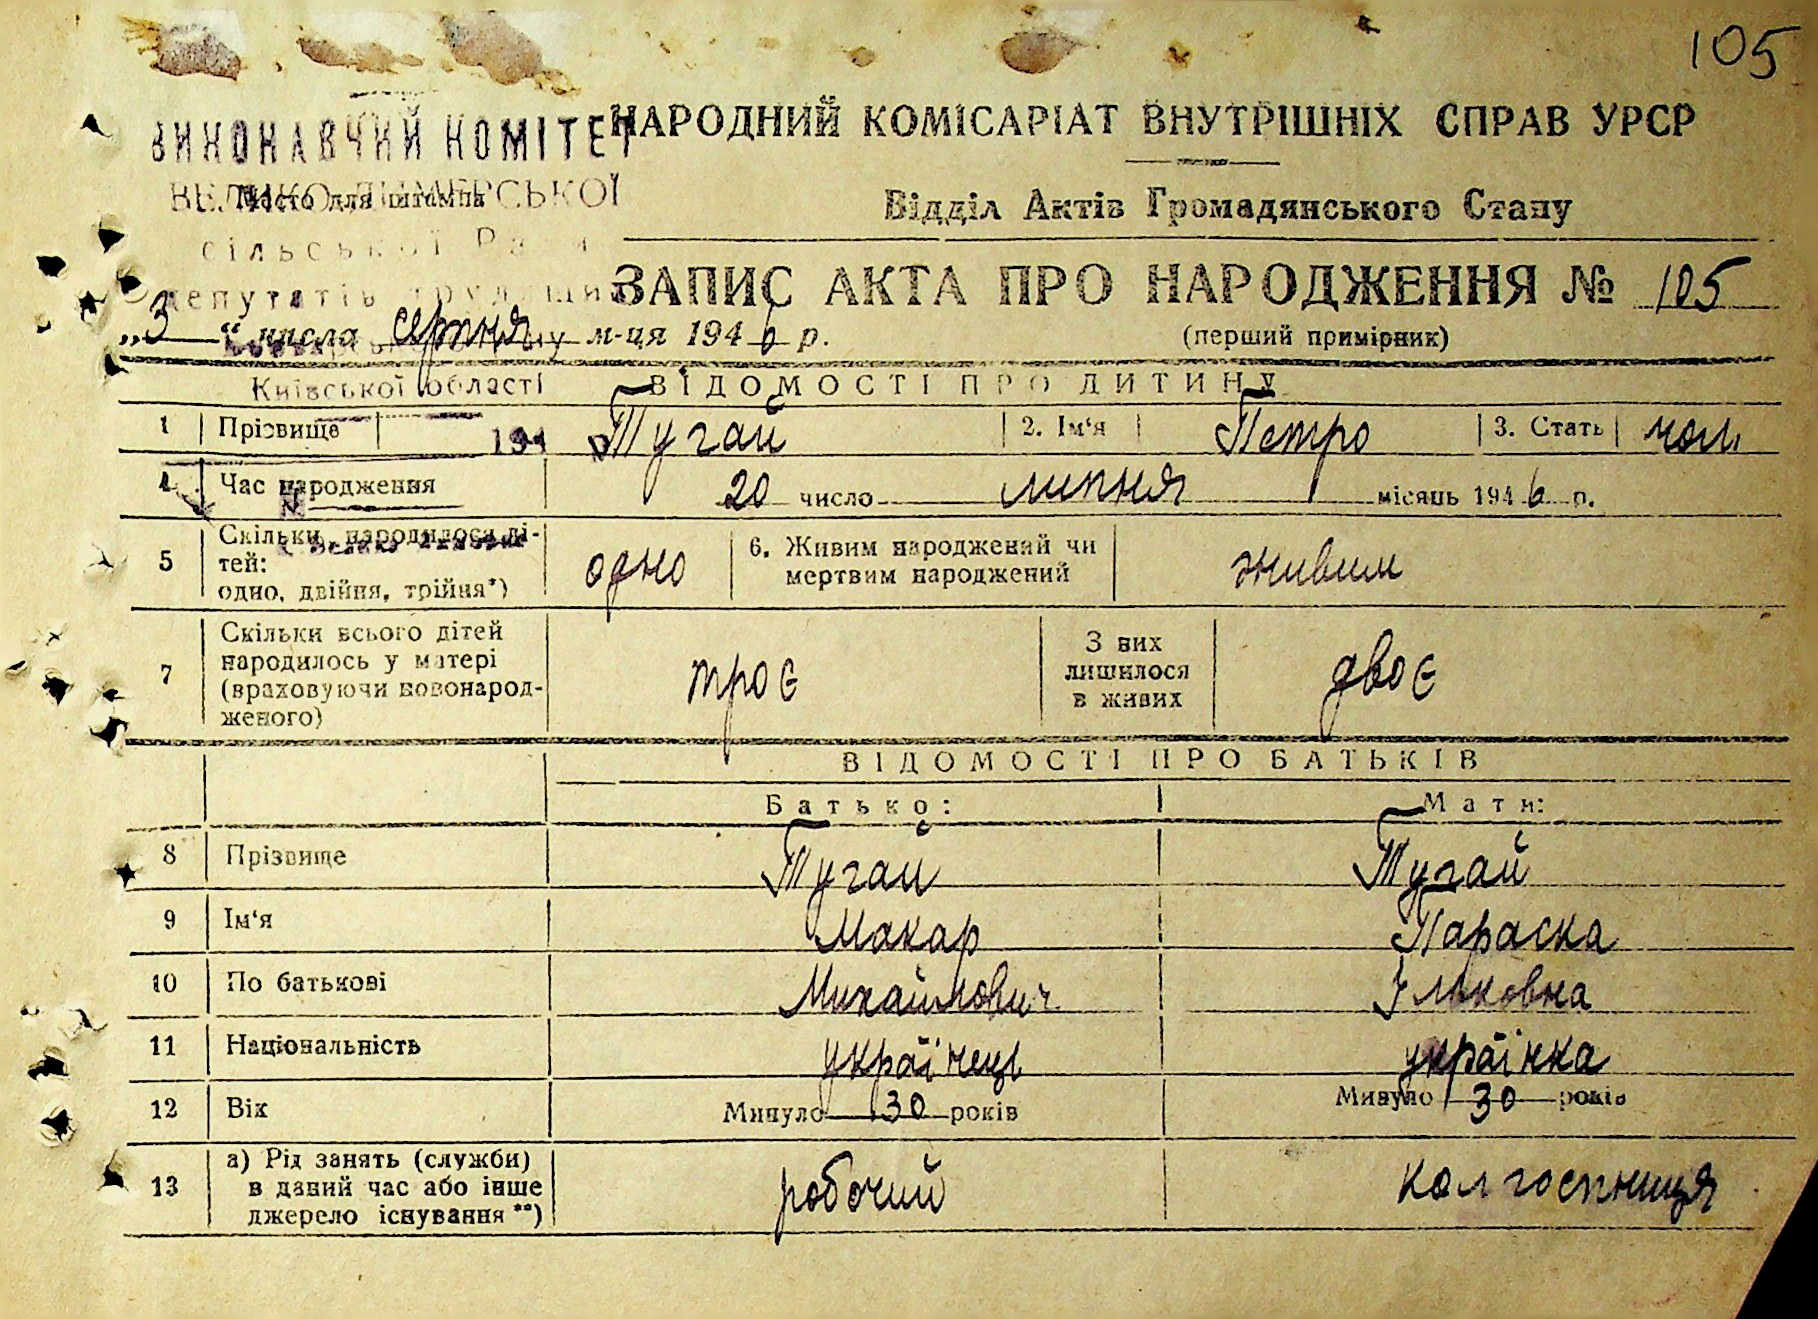 105
ВИКОНАВЧИЙ КОМІТЕТ
НАРОДНИЙ КОМІСАРІАТ ВНУТРІШНІХ СПРАВ УРСР
ВЕЛИКО ДИМЕРСЬКОЇ
Місто для штампа
Відділ Актів Громадянського Стану
сільської Ради
депутатів трудящих
ЗАПИС АКТА ПРО НАРОДЖЕННЯ № 105
„3“ числа серпня м-ця 1946 р.
(перший примірник)
Київської області
ВІДОМОСТІ ПРО ДИТИНУ
1 Прізвище 194 р Тугай 2. Ім'я Петро 3. Стать чол.
4 Час народження 20 число липня місяць 1946 р.
5 Скільки народилося ді-
тей:
одно, двійня, трійня*)
одно
6. Живим народжений чи
мертвим народжений
живим
7 Скільки всього дітей
народилось у матері
(враховуючи новонарод-
женого)
троє
З них
лишилося
в живих
двоє
ВІДОМОСТІ ПРО БАТЬКІВ
Батько: Мати:
8 Прізвище Тугай Тугай
9 Ім'я Макар Параска
10 По батькові Михайлович
11 Національність українець українка
12 Вік Минуло 30 років Минуло 30 років
13 а) Рід занять (служби)
в даний час або інше
джерело існування**)
робочий колгоспниця